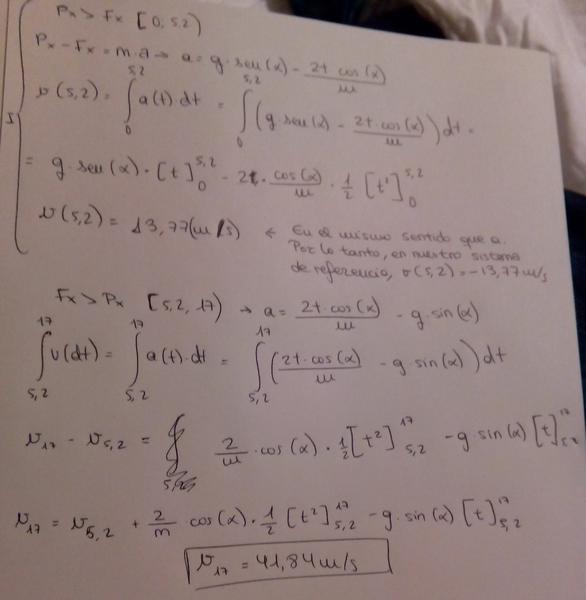 Px > Fx [0, 5,2)
Px - Fx = m·a → a = g·sen(α) - 2t cos(α)/m
v(5,2) = ∫₀^5,2 a(t)·dt = ∫₀^5,2 (g·sen(α) - 2t·cos(α)/m) dt =
= g·sen(α)·[t]₀^5,2 - 2·cos(α)/m · 1/2 [t²]₀^5,2
v(5,2) = 13,77(m/s) ← En el mismo sentido que a.
Por lo tanto, en nuestro sistema
de referencia, v(5,2) = -13,77 m/s
Fx > Px [5,2, 17) → a = 2t·cos(α)/m - g·sin(α)
∫5,2^17 v(dt) = ∫5,2^17 a(t)·dt = ∫5,2^17 (2t·cos(α)/m - g·sin(α)) dt
v17 - v5,2 = 2/m ·cos(α)·1/2 [t²]5,2^17 - g sin(α) [t]5,2^17
v17 = v5,2 + 2/m cos(α)·1/2 [t²]5,2^17 - g·sin(α) [t]5,2^17
v17 = 41,84 m/s